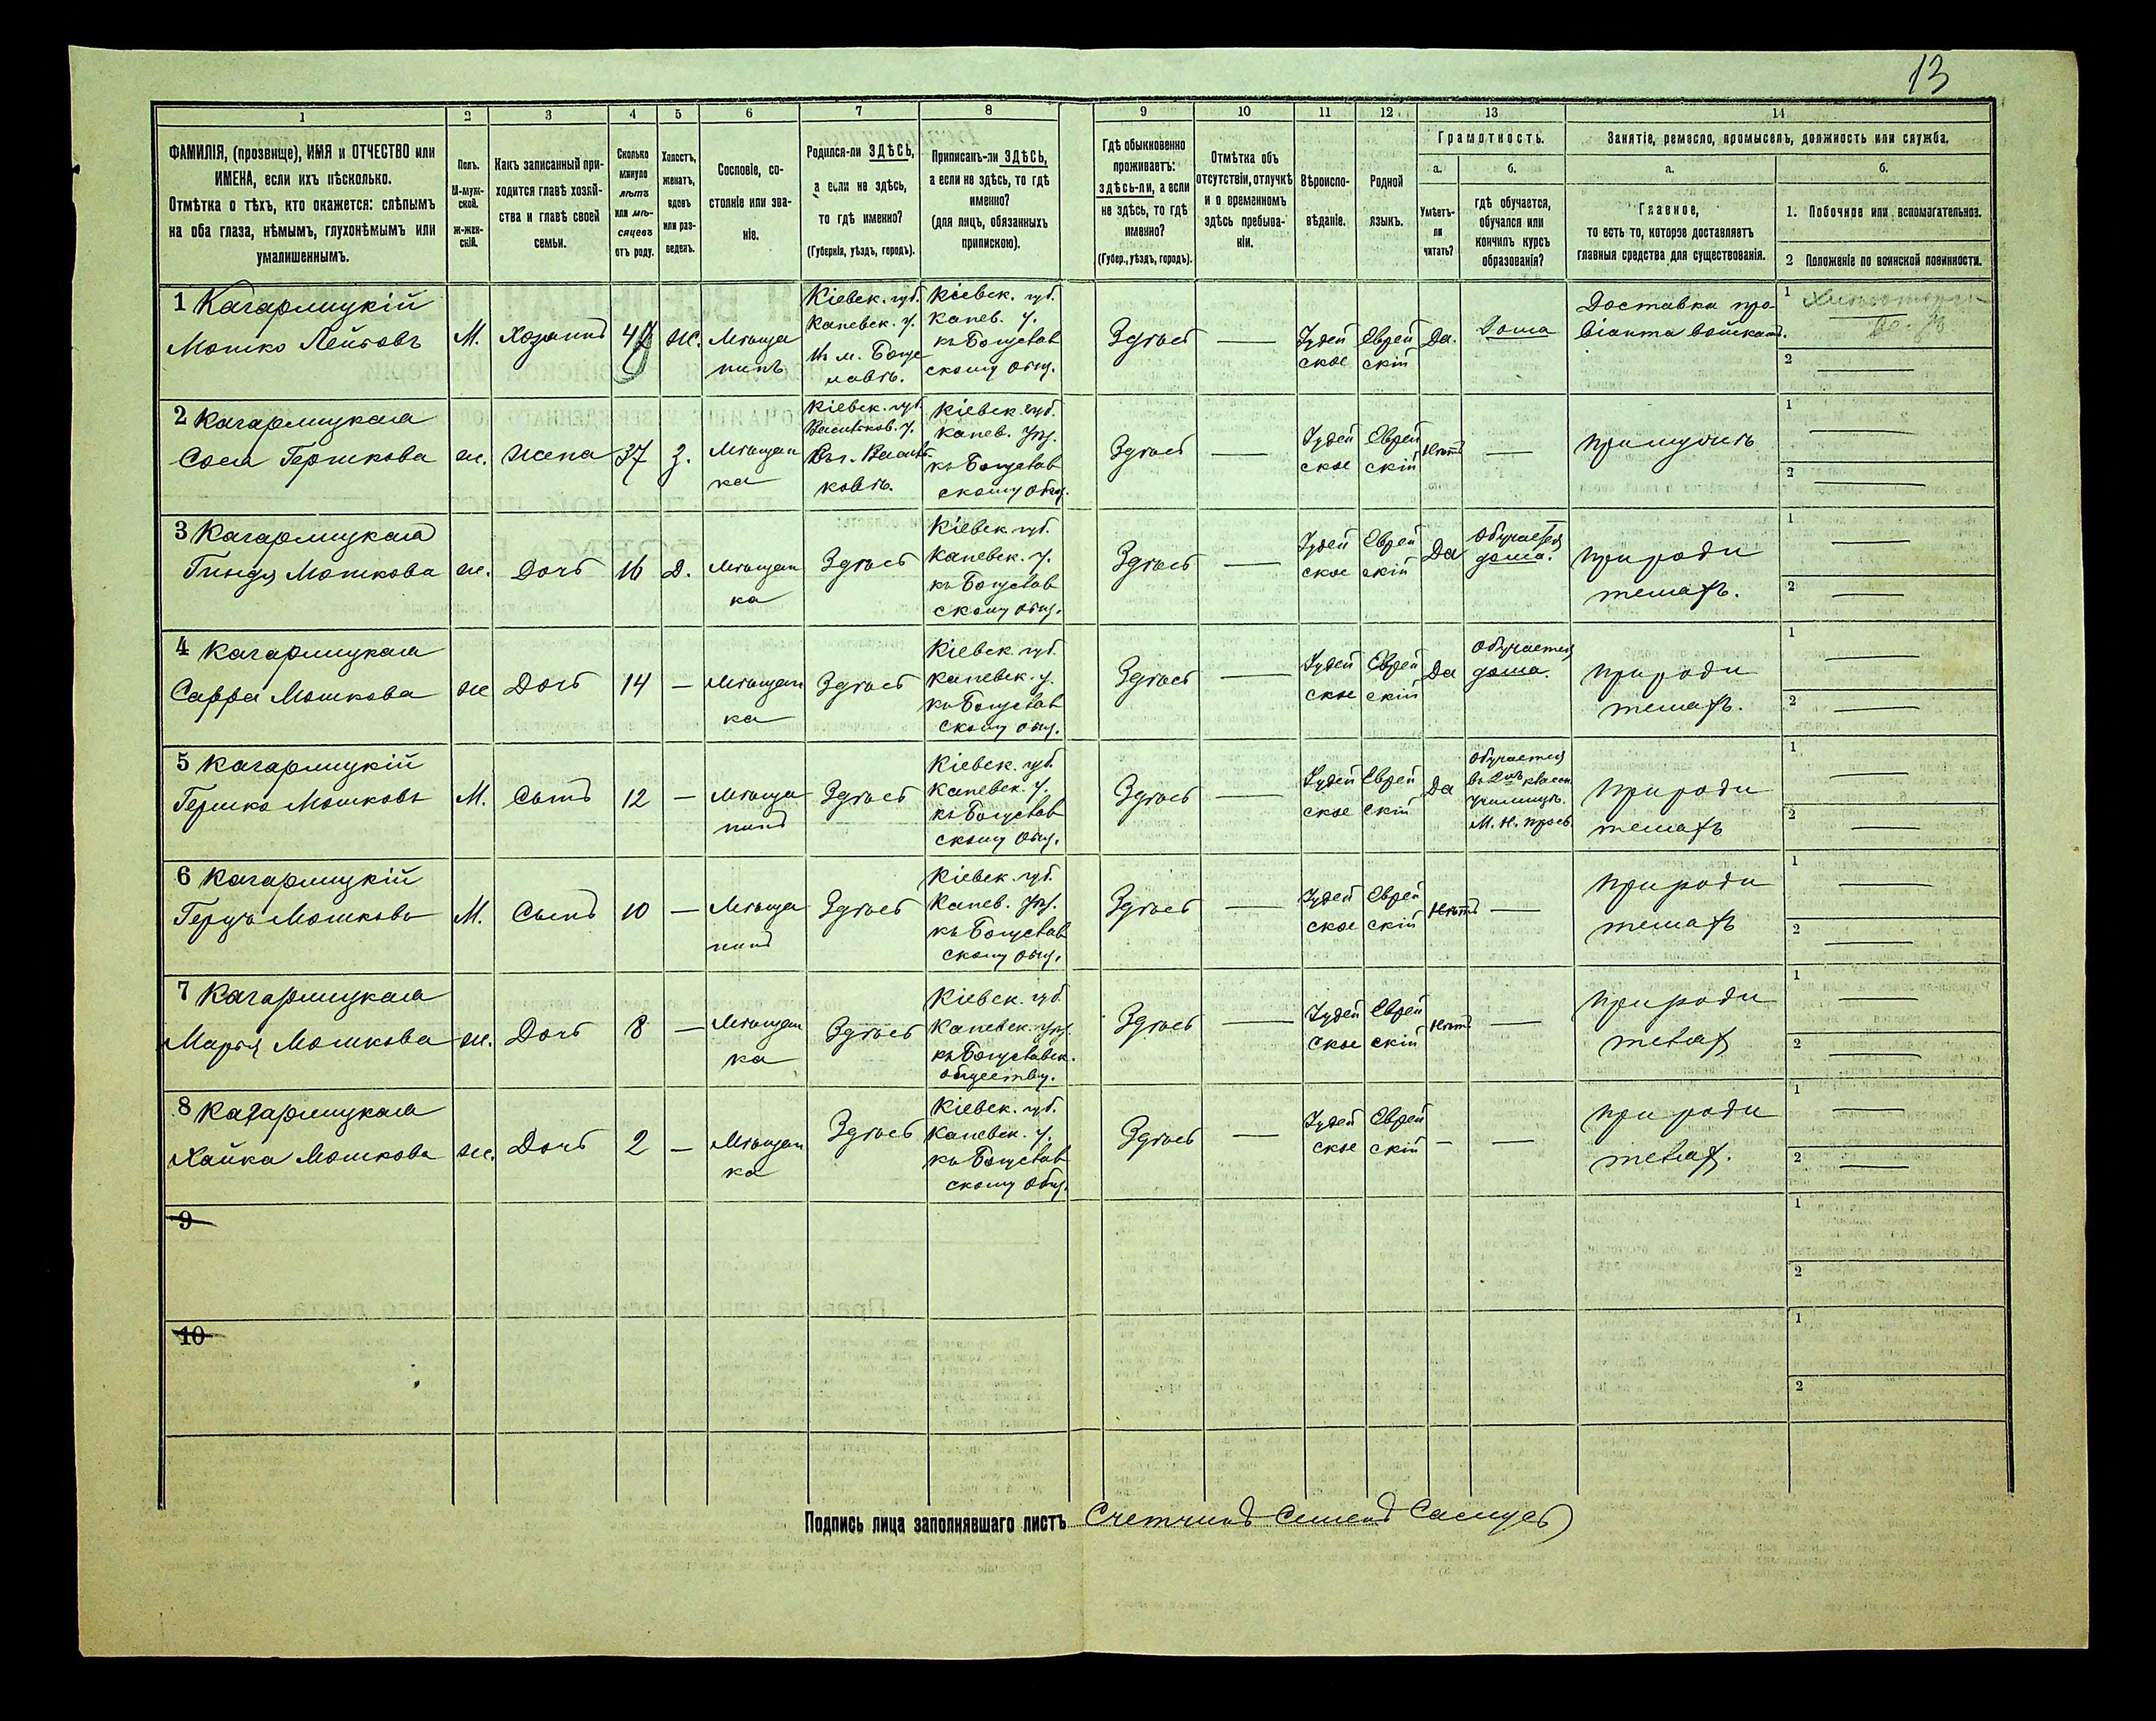 13
1
2
3
4
5
6
7
8
9
10
11
12
13
14
ФАМИЛІЯ, (прозвище), ИМЯ и ОТЧЕСТВО или
ИМЕНА, если ихъ нѣсколько.
Отмѣтка о тѣхъ, кто окажется: слѣпымъ
на оба глаза, нѣмымъ, глухонѣмымъ или
умалишеннымъ.
Полъ.
М-муж-
ской.
ж-жен-
скій.
Какъ записанный при-
ходится главѣ хозяй-
ства и главѣ своей
семьи.
Сколько
минуло
лѣтъ
или мѣ-
сяцевъ
отъ роду.
Холостъ,
женатъ,
вдовъ
или раз-
веденъ.
Сословіе, со-
стояніе или зва-
ніе.
Родился-ли ЗДѢСЬ,
а если не здѣсь,
то гдѣ именно?
(Губернія, уѣздъ, городъ).
Приписанъ-ли ЗДѢСЬ,
а если не здѣсь, то гдѣ
именно?
(для лицъ, обязанныхъ
припискою).
Гдѣ обыкновенно
проживаетъ:
здѣсь-ли, а если
не здѣсь, то гдѣ
именно?
(Губер., уѣздъ, городъ).
Отмѣтка объ
отсутствіи, отлучкѣ
и о временномъ
здѣсь пребыва-
ніи.
Вѣроиспо-
вѣданіе.
Родной
языкъ.
Грамотность.
а.
Умѣетъ-
ли
читать?
б.
гдѣ обучается,
обучался или
кончилъ курсъ
образованія?
Занятіе, ремесло, промыселъ, должность или служба.
а.
Главное,
то есть то, которое доставляетъ
главныя средства для существованія.
б.
1. Побочное или вспомогательное.
2 Положеніе по воинской повинности.
1 Кагарлицкій
Мошко Лейбовъ
М.
Хозяинъ
Ж.
Мѣща
нинъ
Кіевск. губ.
Каневск. у.
Въ м. Богу
славѣ.
Кіевск. губ.
Канев. у.
къ Богуслав
скому общ.
Здѣсь
—
Іудей
ское
Еврей
скій
Да.
Дома
Доставка про-
віанта войскамъ.
1
2
2 Кагарлицкая
Сося Гершкова
ж.
Жена
37
З.
Мѣщан
ка
Кіевск. губ.
Васильков. у.
Въ г. Василь
ковѣ.
Кіевск. губ.
Канев. уѣз.
къ Богуслав
скому общ.
Здѣсь
—
Іудей
ское
Еврей
скій
Нѣтъ
—
при мужѣ
1
2
3 Кагарлицкая
Гиндя Мошкова
ж.
Дочь
16
Д.
Мѣщан
ка
Здѣсь
Кіевск. губ.
Каневск. у.
къ Богуслав
скому общ.
Здѣсь
—
Іудей
ское
Еврей
скій
Да
Обучается
дома.
при роди
теляхъ.
1
2
4 Кагарлицкая
Сарра Мошкова
ж
Дочь
14
—
Мѣщан
ка
Здѣсь
Кіевск. губ.
Каневск. у.
къ Богуслав
скому общ.
Здѣсь
—
Іудей
ское
Еврей
скій
Да
Обучается
дома.
при роди
теляхъ.
1
2
5 Кагарлицкій
Гершко Мошковъ
М.
Сынъ
12
—
Мѣща
нинъ
Здѣсь
Кіевск. губ.
Каневск. у.
къ Богуслав
скому общ.
Здѣсь
—
Іудей
ское
Еврей
скій
Да
Обучается
въ 2хъ классн.
училищѣ.
М. Н. Просв.
при роди
теляхъ
1
2
6 Кагарлицкій
Герцъ Мошковъ
М.
Сынъ
10
—
Мѣща
нинъ
Здѣсь
Кіевск. губ.
Канев. уѣз.
къ Богуслав
скому общ.
Здѣсь
—
Іудей
ское
Еврей
скій
Нѣтъ
—
при роди
теляхъ
1
2
7 Кагарлицкая
Марья Мошкова
ж.
Дочь
8
—
Мѣщан
ка
Здѣсь
Кіевск. губ
Каневск. уѣз.
къ Богуславск.
обществу.
Здѣсь
—
Іудей
ское
Еврей
скій
Нѣтъ
—
при роди
телях
1
2
8 Кагарлицкая
Хайка Мошкова
ж.
Дочь
2
—
Мѣщан
ка
Здѣсь
Кіевск. губ.
Каневск. у.
къ Богуслав
скому общ.
Здѣсь
—
Іудей
ское
Еврей
скій
—
—
при роди
телях.
1
2
9
1
2
10
1
2
Подпись лица заполнявшаго листъ Счетчикъ Семенъ